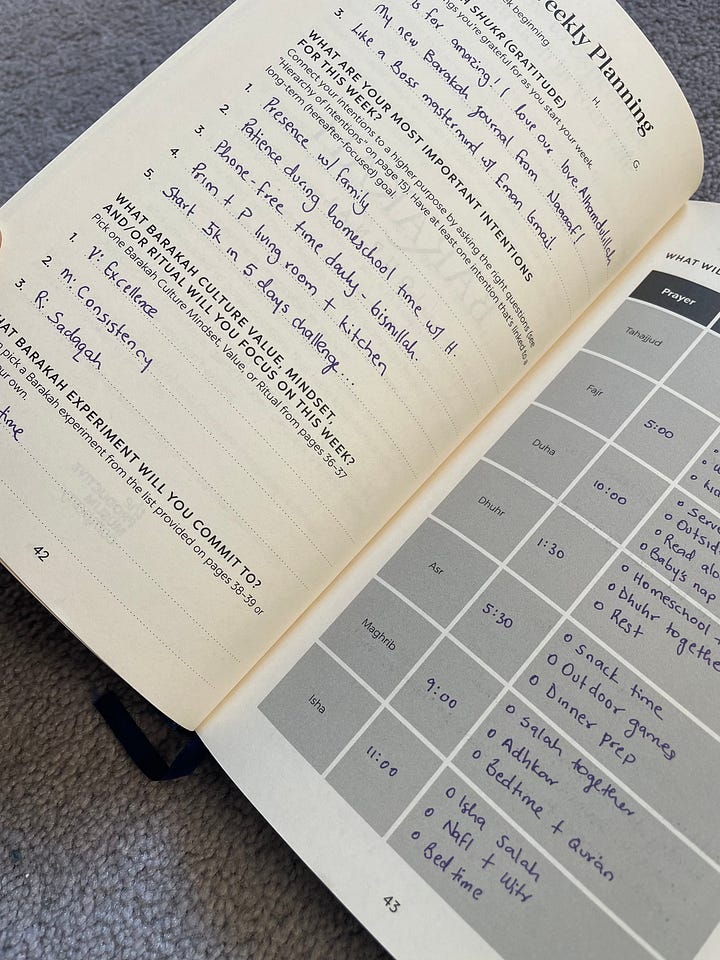 Weekly Planning
ek beginning H. G.
H SHUKR (GRATITUDE)
ngs you're grateful for as you start your week.
is for amazing! I love our love. Alhamdulillah
My new Barakah Journal from Naaafl
3. Like a Boss mastermind w/ Eman Ismail
WHAT ARE YOUR MOST IMPORTANT INTENTIONS
FOR THIS WEEK?
Connect your intentions to a higher purpose by asking the right questions (see
"Hierarchy of Intentions" on page 15). Have at least one intention that's linked to a
long-term (hereafter-focused) goal.
1. Presence w/ family
2. Patience during homeschool time w/ H.
3. Phone-free time daily - bismillah.
4. Prim + P living room + kitchen
5. Start 5k in 5 days challenge...
WHAT BARAKAH CULTURE VALUE, MINDSET,
AND/OR RITUAL WILL YOU FOCUS ON THIS WEEK?
Pick one Barakah Culture Mindset, Value, or Ritual from pages 36-37
1. V: Excellence
2. M: Consistency
3. R: Sadaqah
HAT BARAKAH EXPERIMENT WILL YOU COMMIT TO?
n pick a Barakah experiment from the list provided on pages 38-39 or
our own.
time
42
WHAT WI
Prayer
Tahajjud
Fajr
5:00
kid
Duha
10:00
Serv
Outsid
Read alo
Baby's nap
Dhuhr
1:30
Homeschool
Dhuhr togethe
Rest
Asr
5:30
Snack time
Outdoor games
Dinner prep
Maghrib
9:00
Salah together
Adhkar
Bedtime + Qur'an
Isha
11:00
Isha Salah
Nafl + Witr
Bed time
43